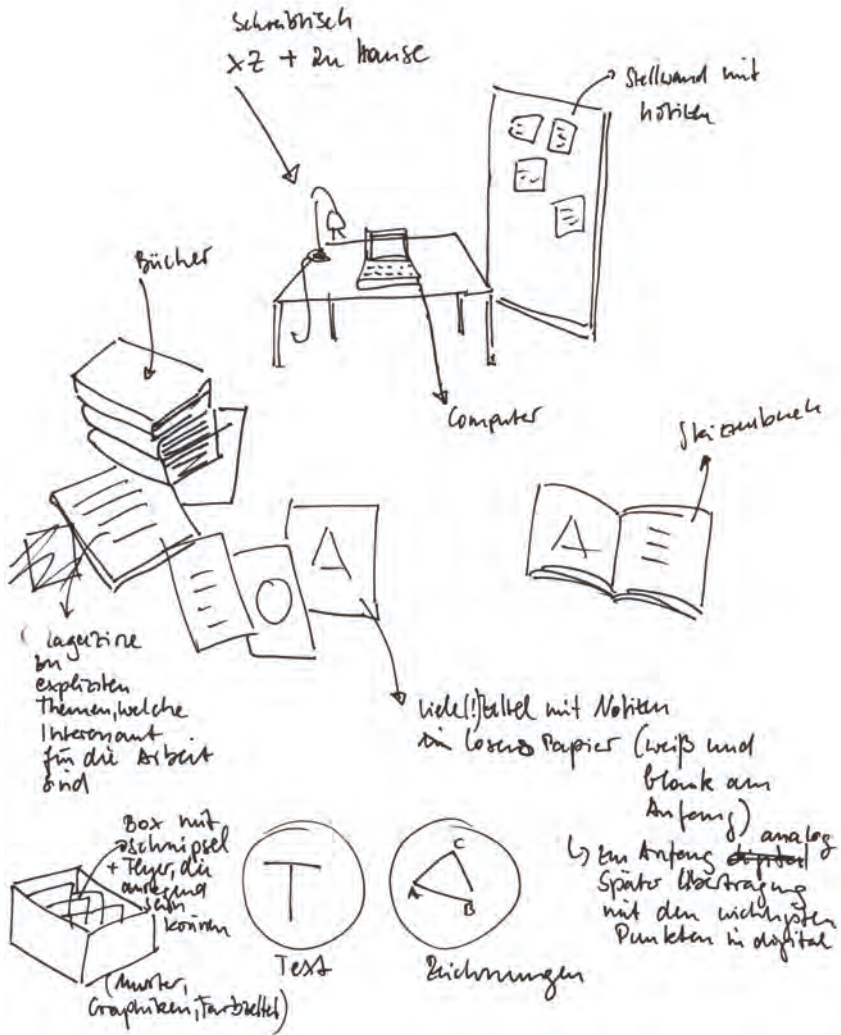 Schreibtisch
XZ + zu Hause
Stellwand mit
Notizen
Bücher
Computer
Skizzenbuch
A
A
Magazine
zu
expliziten
Themen, welche
Interessant
für die Arbeit
sind
viele(!) Zettel mit Notizen
loses Papier (weiß und
blank am
Anfang)
↳ zu Anfang analog
Später Übertragung
mit den wichtigsten
Punkten in digital
Box mit
schnipsel
+ Flyer, die
anregend
sein
können
(Muster,
Graphiken, Farbzettel)
T
Text
C
A
B
Zeichnungen